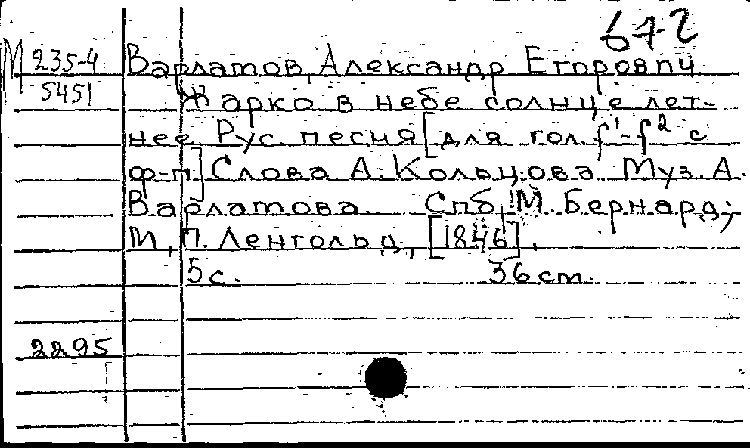 672
М 235-4 Варламов, Александр Егорович
5451 Жарко в небе солнце лет-
нее. Рус. песня [для гол. f¹-f² с
ф-п.] Слова А. Кольцова Муз. А.
Варламова. Спб, М. Бернард;
М, П. Ленгольд, [1846].
5 с. 36 см.
2295